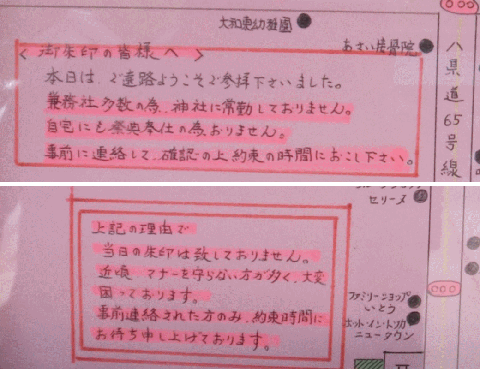 大和東幼稚園
あさい接骨院
〈御朱印の皆様へ〉
本日は、ご遠路ようこそご参拝下さいました。
兼務社多数の為、神社に常勤しておりません。
自宅にも祭典奉仕の為、おりません。
事前に連絡して、確認の上約束の時間におこし下さい。
県道65号線
セリーヌ
上記の理由で
当日の朱印は致しておりません。
近頃 マナーを守らない方が多く、大変
困っております。
事前連絡された方のみ、約束時間に
お待ち申し上げております。
ファミリーショップ
いとう
ニュータウン